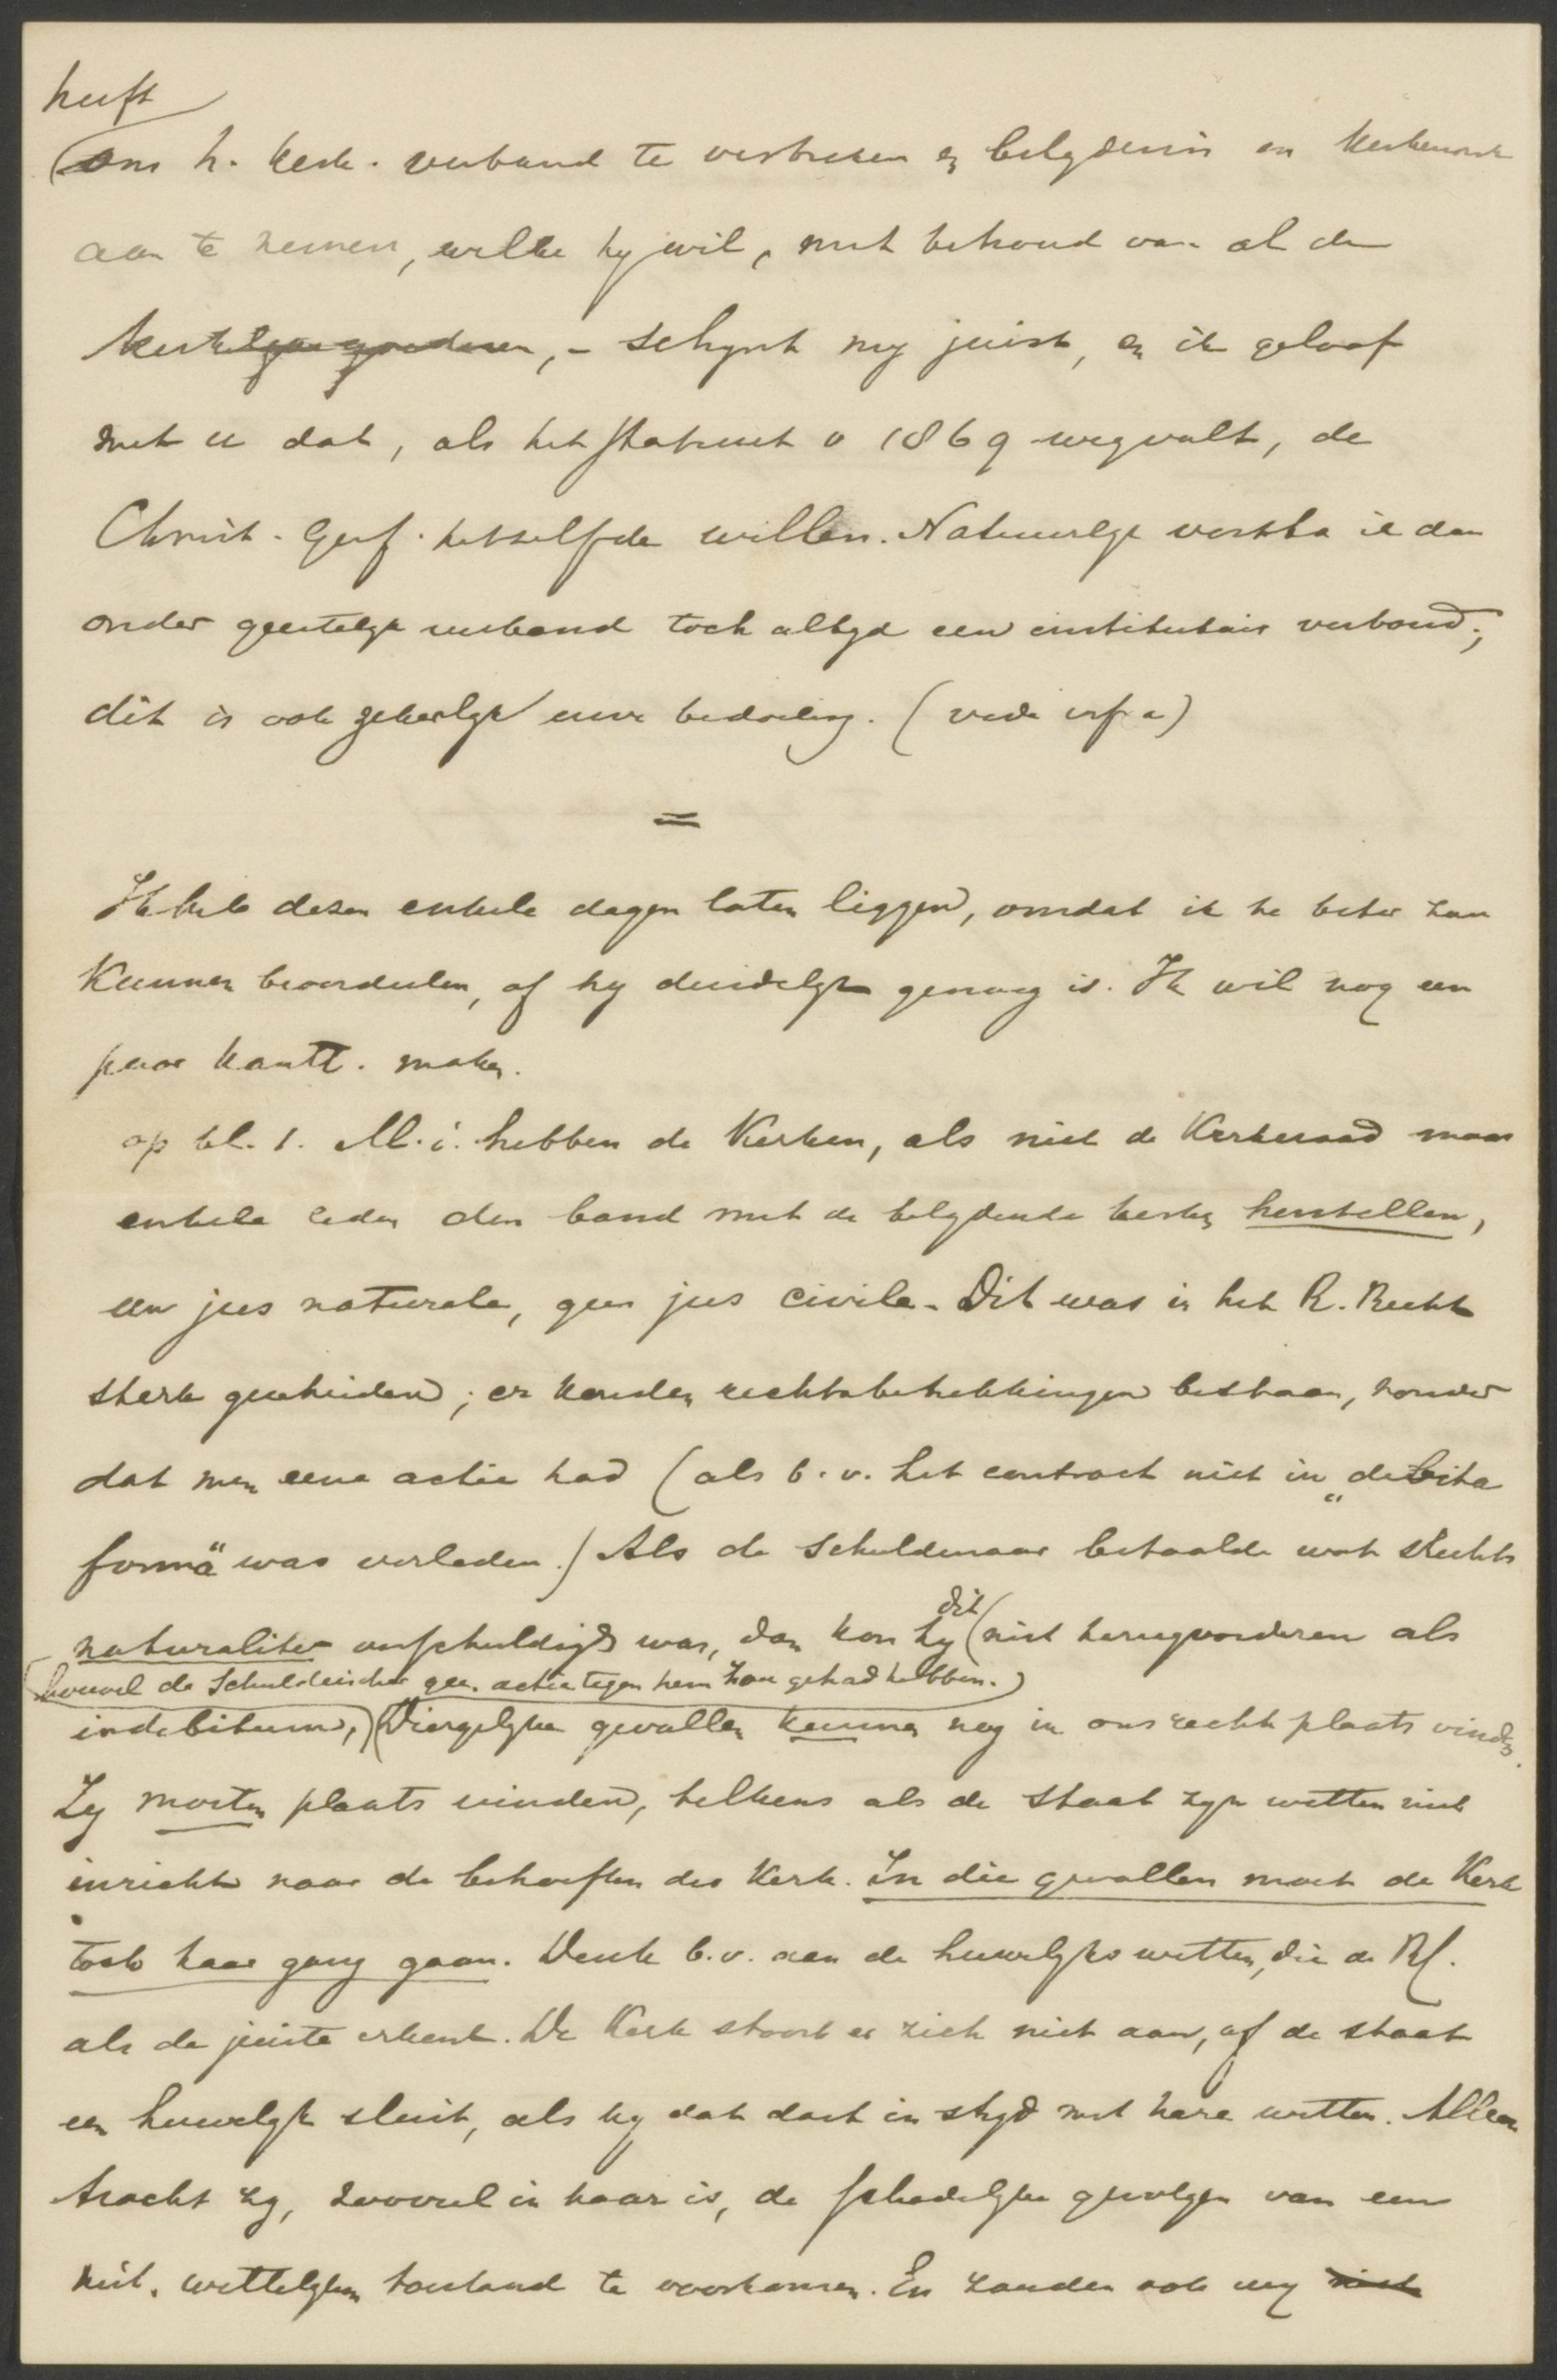 heeft
om h. kerk. verband te verbreken en belydenis en kerkenorde
aan te nemen, welke hy wil, met behoud van al de
kerkelyke goederen, - schynt my juist, en ik geloof
met u dat, als het Statuut v 1869 wegvalt, de
Christ. Geref. hetzelfde willen. Natuurlyk versta ik dan
onder geestelyk verband toch altyd een institutair verband;
dit is ook zekerlyk uwe bedoeling. (vide infra)
=
Ik heb dezen enkele dagen laten liggen, omdat ik te beter zou
kunnen beoordeelen, of hy duidelyk genoeg is. Ik wil nog een
paar kantt. maken.
op bl. 1. M.i. hebben de Kerken, als niet de Kerkeraad maar
enkele leden den band met de belydende kerken herstellen,
een jus naturale, geen jus civile. Dit was in het R. Recht
sterk gescheiden; er konden rechtsbetrekkingen bestaan, zonder
dat men eene actie had (als b.v. het contract niet in „debita
forma" was verleden.) Als de schuldenaar betaalde wat slechts
naturaliter verschuldigd was, dan kon hy dit niet terugvorderen als
(hoewel de schuldeischer geen actie tegen hem zou gehad hebben.)
indebitum, Diergelyke gevallen kunnen nog in ons recht plaats vinden.
Zy moeten plaats vinden, telkens als de Staat zyn wetten niet
inricht naar de behoeften der Kerk. In die gevallen moet de Kerk
toch haar gang gaan. Denk b.v. aan de huwelyks wetten, die de Rk.
als de juiste erkent. De Kerk stoort er zich niet aan, of de staat
een huwelyk sluit, als hy dat doet in stryd met hare wetten. Alleen
tracht zy, zooveel in haar is, de schadelyke gevolgen van een
niet. wettelyken toestand te voorkomen. En zouden ook wy niet